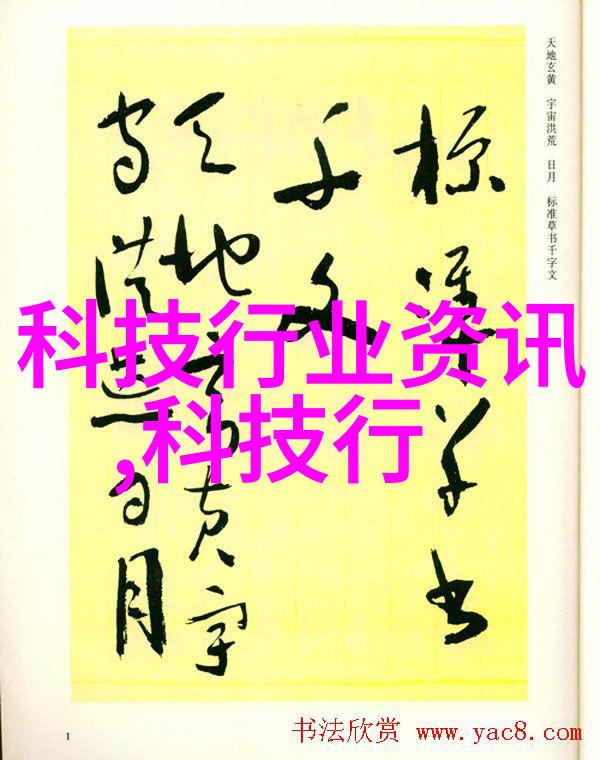 天地玄黄 宇宙洪荒 日月 标准草书千字文
標準草書
千文
天地玄黄宇
宙洪荒日月
科技行业资讯
,科技行
1
书法欣赏 www.yac8.com